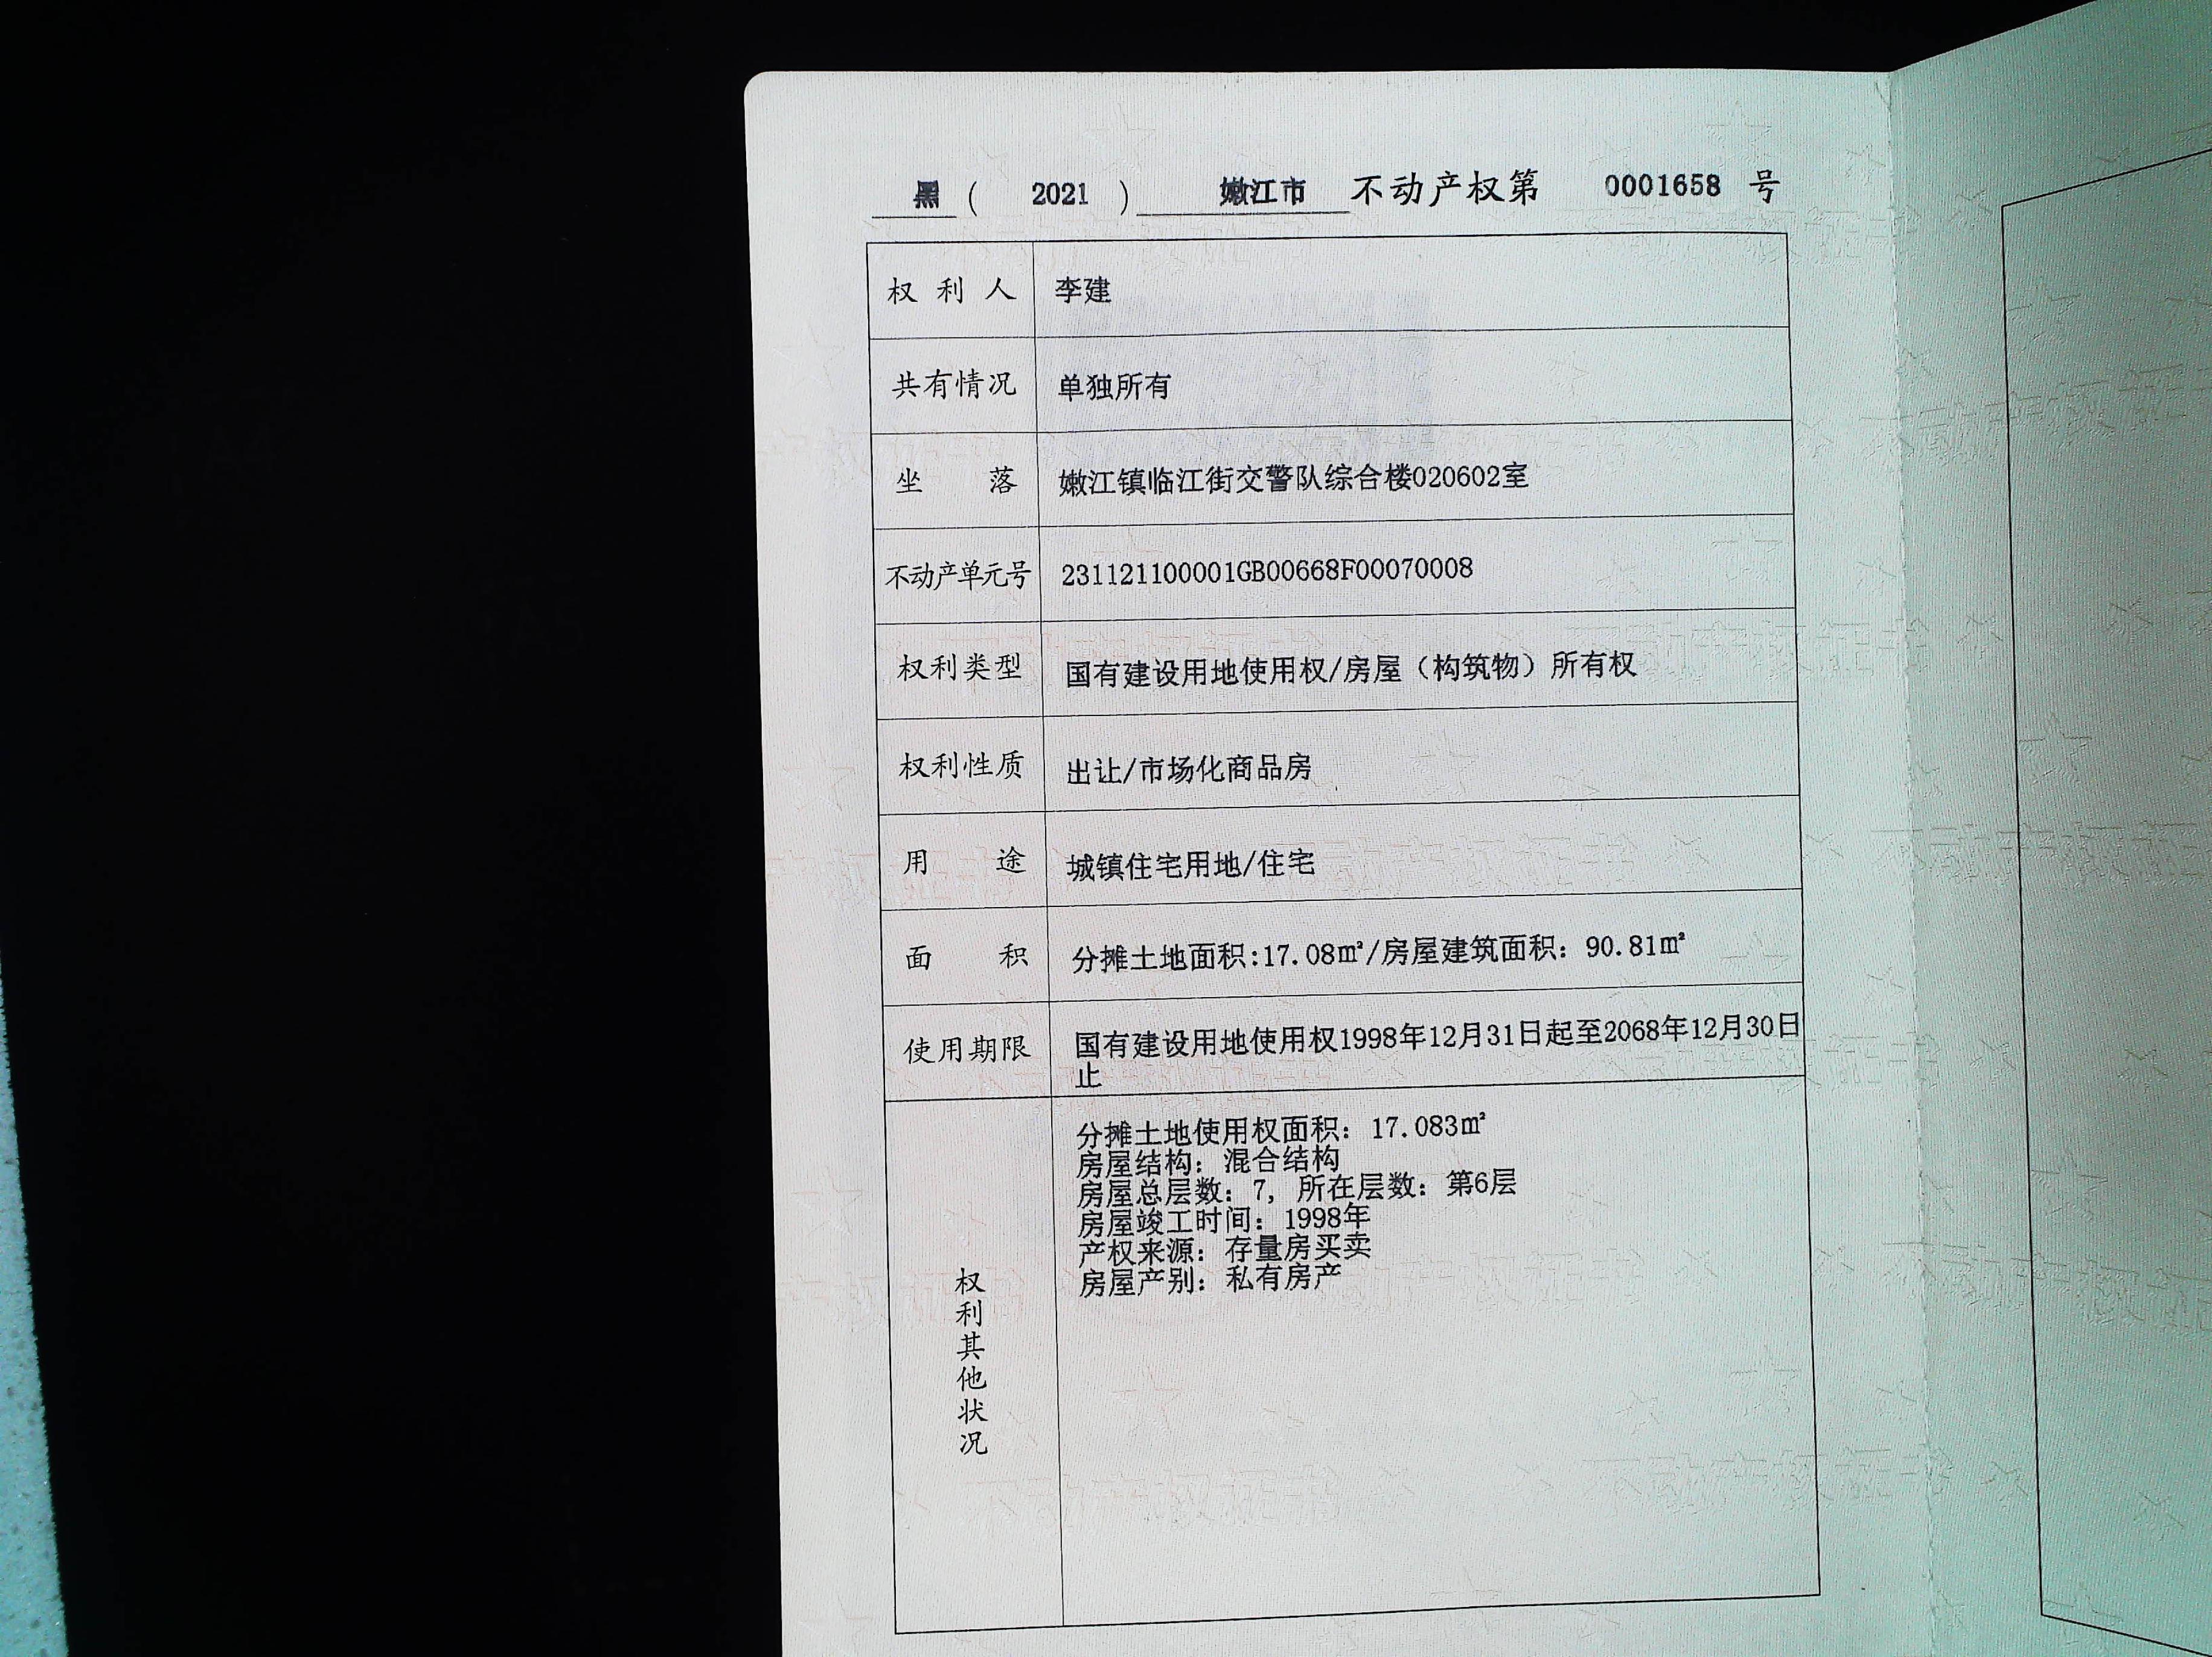 黑 ( 2021 ) 嫩江市 不动产权第 0001658 号
权利人 李建
共有情况 单独所有
坐落 嫩江镇临江街交警队综合楼020602室
不动产单元号 231121100001GB00668F00070008
权利类型 国有建设用地使用权/房屋（构筑物）所有权
权利性质 出让/市场化商品房
用途 城镇住宅用地/住宅
面积 分摊土地面积:17.08㎡/房屋建筑面积：90.81㎡
使用期限 国有建设用地使用权1998年12月31日起至2068年12月30日
止
权利其他状况
分摊土地使用权面积：17.083㎡
房屋结构：混合结构
房屋总层数：7, 所在层数：第6层
房屋竣工时间：1998年
产权来源：存量房买卖
房屋产别：私有房产